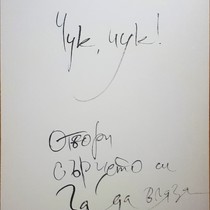 Чук, чук!
Отвори
сърцето си
да вляза